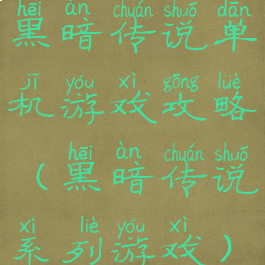 hēi àn chuán shuō dān
黑暗传说单
jī yóu xì gōng lüè
机游戏攻略
hēi àn chuán shuō
(黑暗传说
xì liè yóu xì
系列游戏)